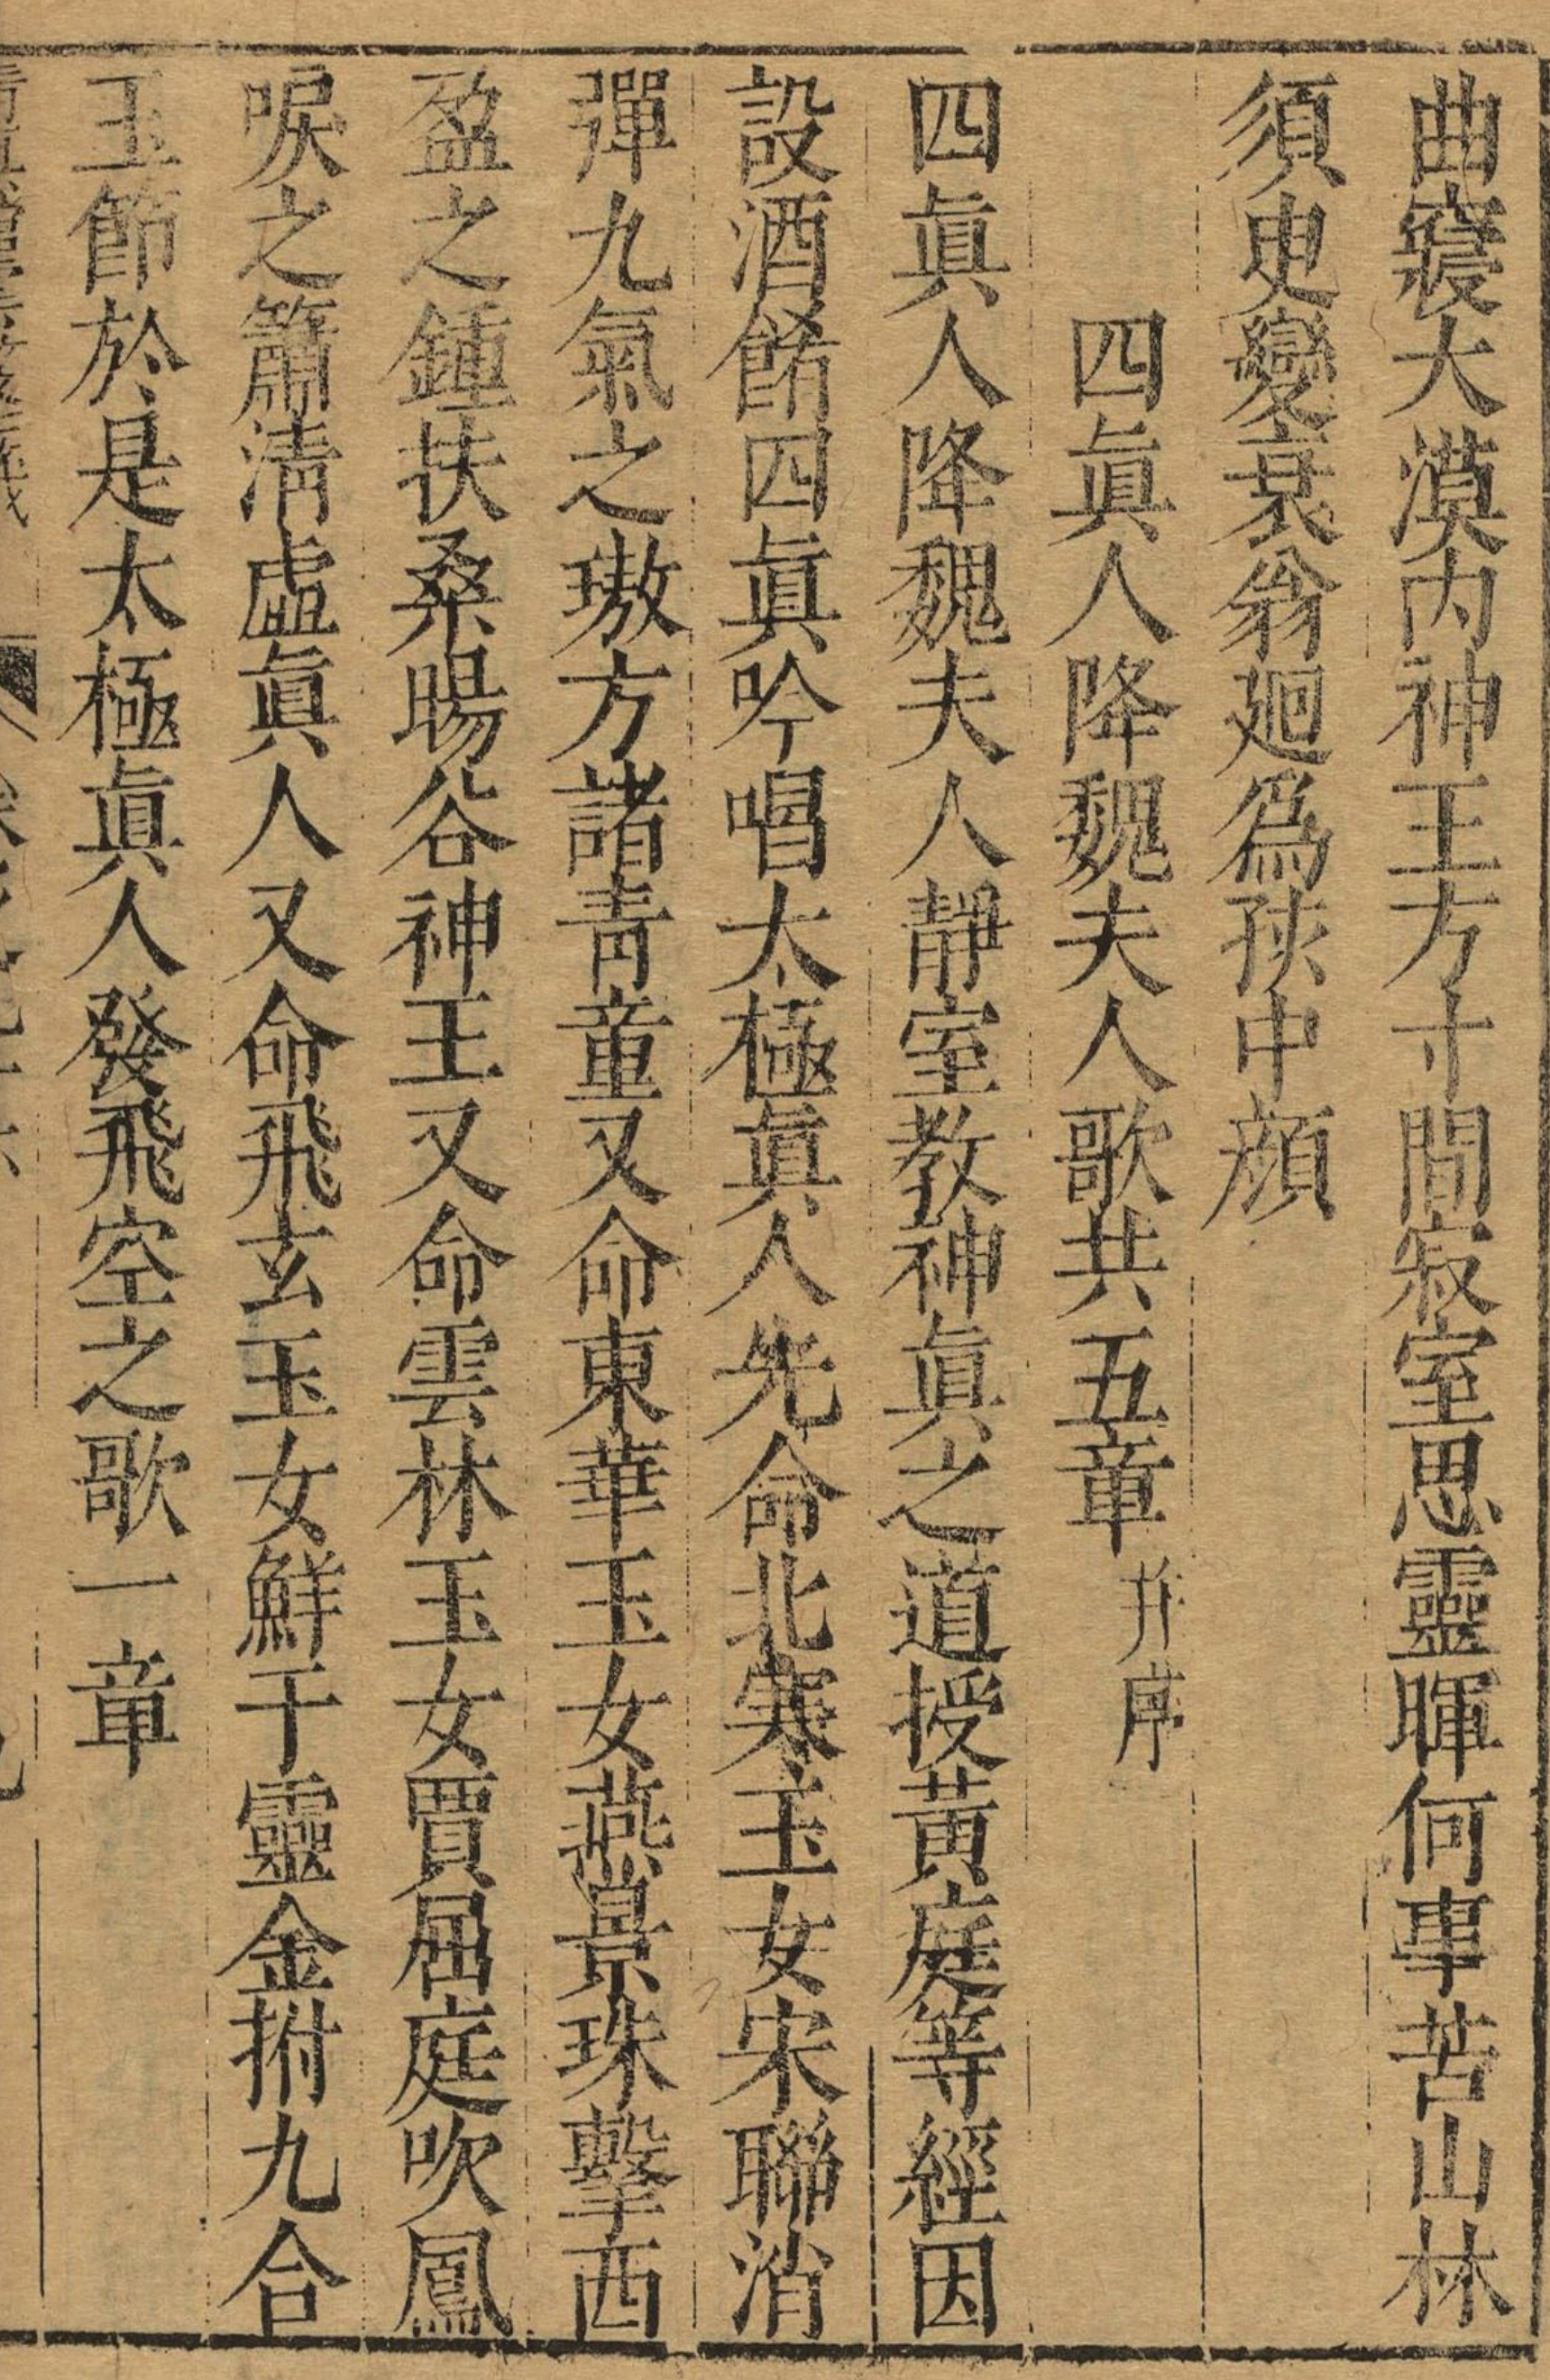 曲寢大漠內神王方寸間寂室思靈暉何事苦山林
須臾變衰翁廻爲孩中顔
四眞人降魏夫人歌共五章 并序
四眞人降魏夫人靜室教神眞之道授黃庭等經因
設酒餚四眞吟唱太極眞人先命北寒玉女宋聯消
彈九氣之璈方諸青童又命東華玉女燕景珠擊西
盈之鍾扶桑暘谷神王又命雲林玉女賈屈庭吹鳳
唳之簫清虛眞人又命飛玄玉女鮮于靈金拊九合
玉節於是太極眞人發飛空之歌一章